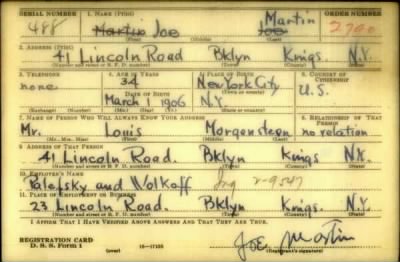 SERIAL NUMBER 1. NAME (Print) ORDER NUMBER
488 Martin Joe Joe Martin 2790
(First) (Middle) (Last)
2. ADDRESS (Print)
41 Lincoln Road Bklyn Kings N.Y.
(Number and street or R. F. D. number) (Town) (County) (State)
3. TELEPHONE 4. AGE IN YEARS 5. PLACE OF BIRTH 6. COUNTRY OF CITIZENSHIP
none 34 New York City U.S.
DATE OF BIRTH (Town or county)
March 1 1906 N.Y.
(Exchange) (Number) (Mo.) (Day) (Yr.) (State or country)
7. NAME OF PERSON WHO WILL ALWAYS KNOW YOUR ADDRESS 8. RELATIONSHIP OF THAT PERSON
Mr. Louis Morgenstern no relation
(Mr., Mrs., Miss) (First) (Middle) (Last)
9. ADDRESS OF THAT PERSON
41 Lincoln Road. Bklyn Kings N.Y.
(Number and street or R. F. D. number) (Town) (County) (State)
10. EMPLOYER'S NAME
Palefsky and Wolkoff 2-9547
11. PLACE OF EMPLOYMENT OR BUSINESS
23 Lincoln Road. Bklyn Kings. N.Y.
(Number and street or R. F. D. number) (Town) (County) (State)
I AFFIRM THAT I HAVE VERIFIED ABOVE ANSWERS AND THAT THEY ARE TRUE.
REGISTRATION CARD
D. S. S. Form 1 (over) 16-17105 Joe Martin
(Registrant's signature)